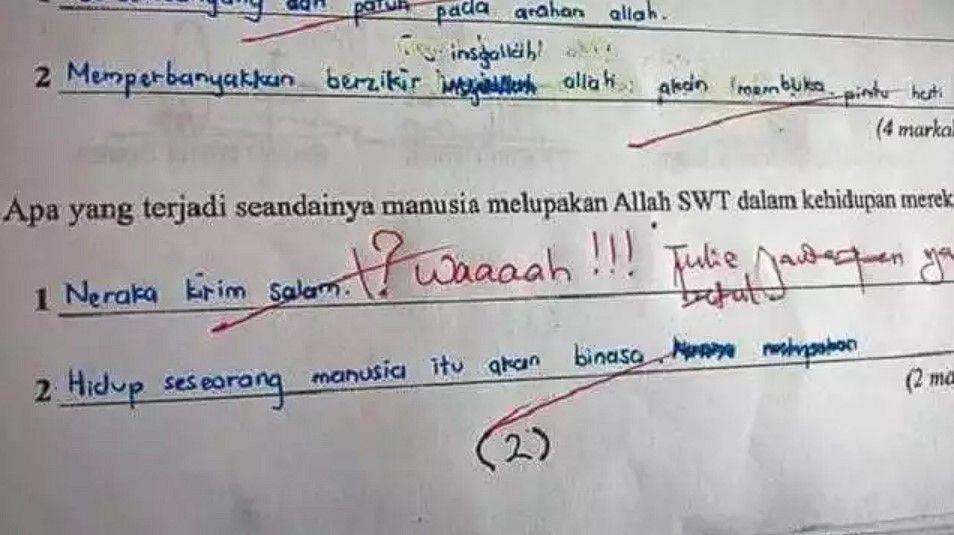 dan patuh pada arahan allah.
insyallah!
2 Memperbanyakkan berzikir allah. akan membuka pintu hati
(4 marka
Apa yang terjadi seandainya manusia melupakan Allah SWT dalam kehidupan merek
1 Neraka kirim salam. ? Waaaah !!! Tulis jawapan ya
betul
2 Hidup seseorang manusia itu akan binasa.
(2 ma
(2)